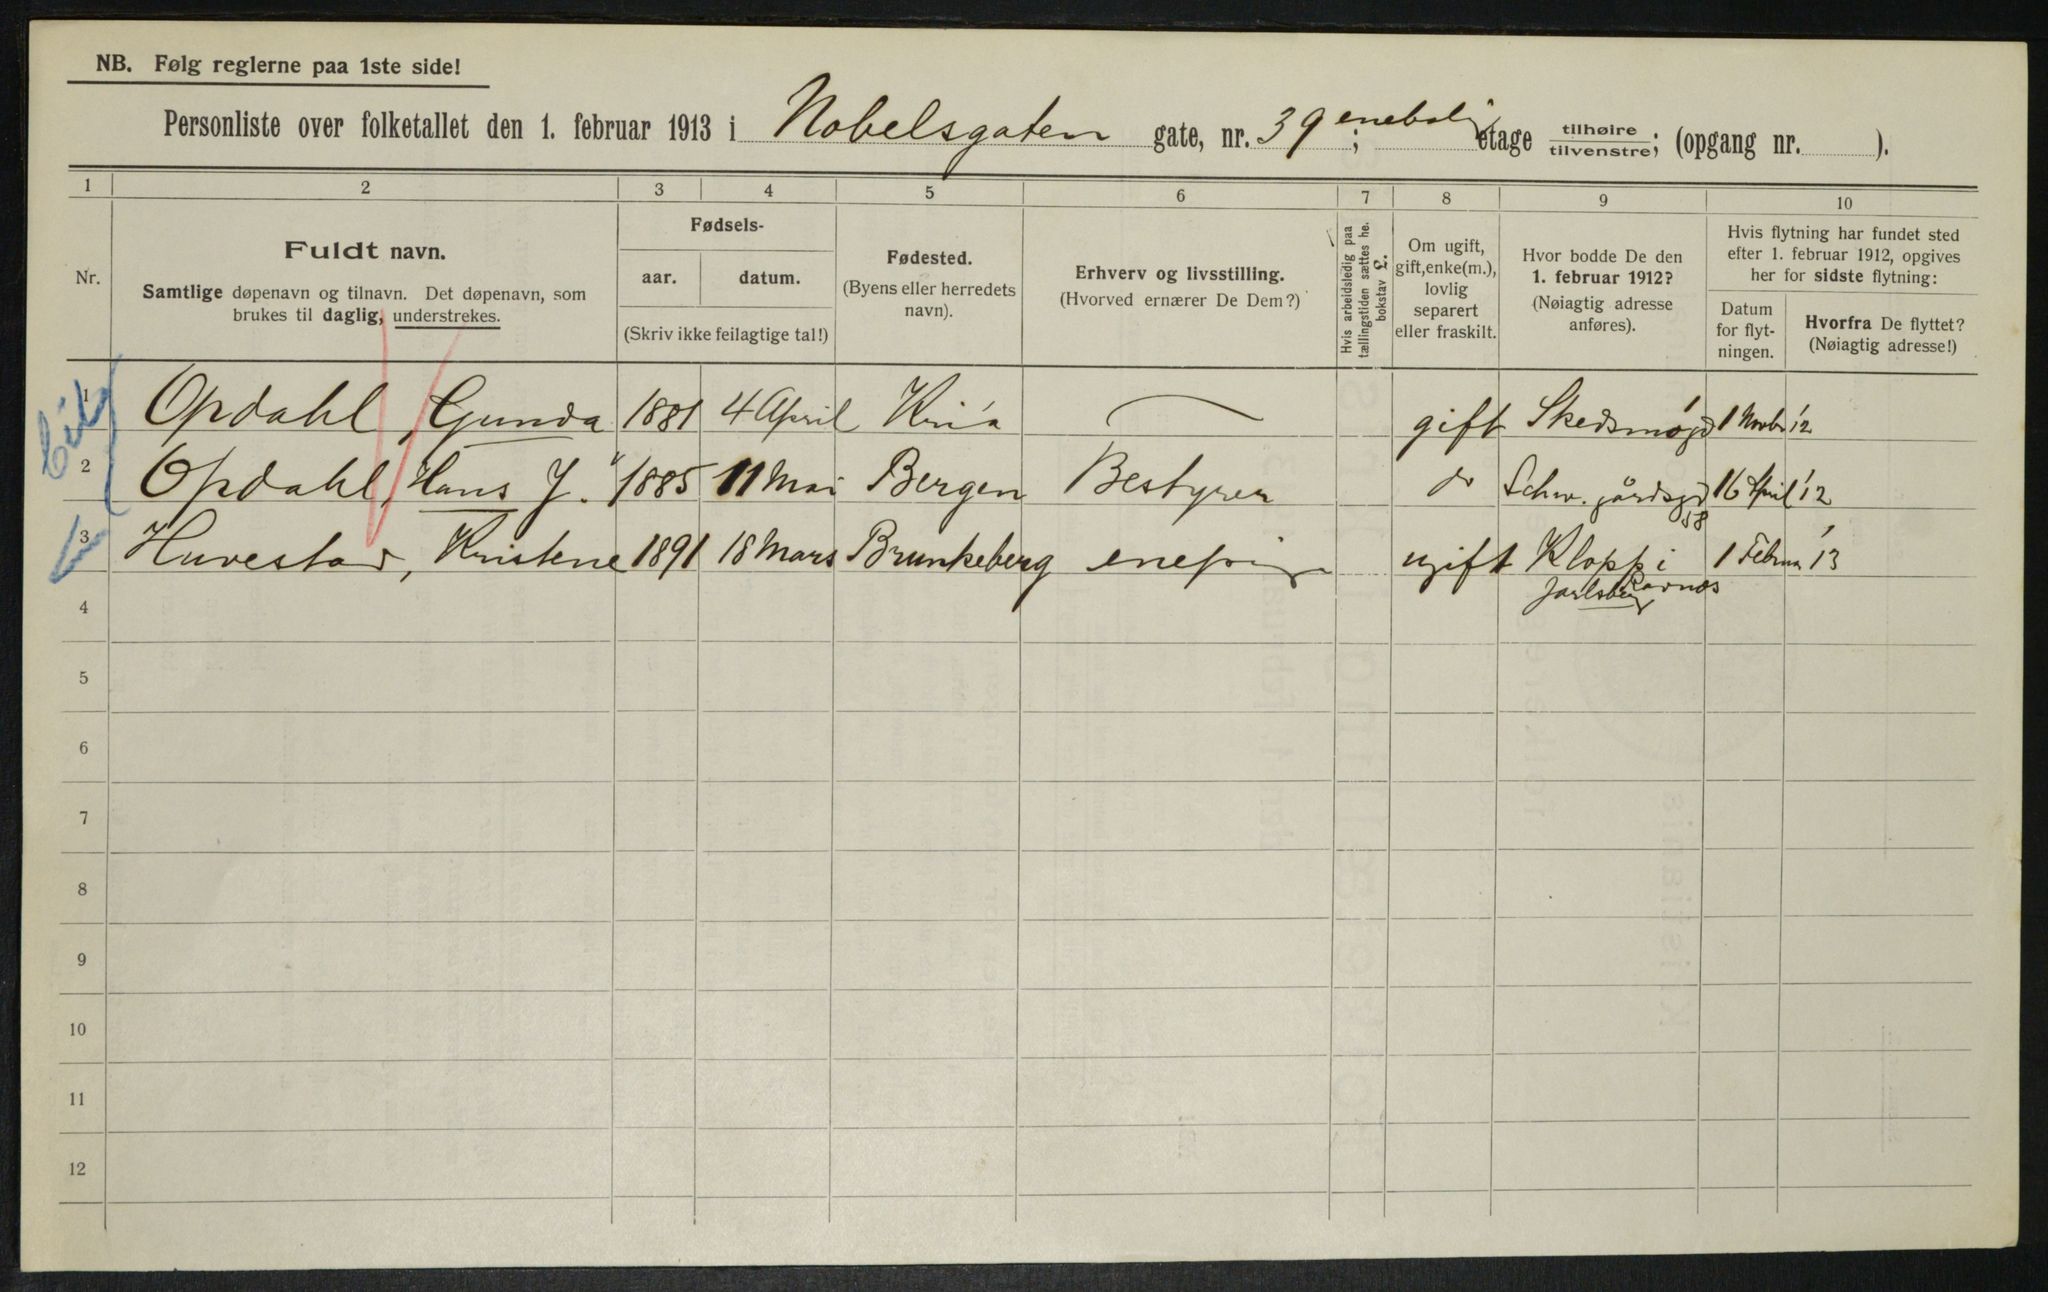 NB. Følg reglerne paa 1ste side!
Personliste over folketallet den 1. februar 1913 i Nobelsgaten gate, nr. 39 ; enebolig etage tilhøire/tilvenstre; (opgang nr. ).
1 2 3 4 5 6 7 8 9 10
Nr.
Fuldt navn.
Samtlige døpenavn og tilnavn. Det døpenavn, som
brukes til daglig, understrekes.
Fødsels-
aar. datum.
(Skriv ikke feilagtige tal!)
Fødested.
(Byens eller herredets
navn).
Erhverv og livsstilling.
(Hvorved ernærer De Dem?)
Hvis arbeidsledig paa
tællingstiden sættes he.
bokstav £.
Om ugift,
gift, enke(m.),
lovlig
separert
eller fraskilt.
Hvor bodde De den
1. februar 1912?
(Nøiagtig adresse
anføres).
Hvis flytning har fundet sted
efter 1. februar 1912, opgives
her for sidste flytning:
Datum
for flyt-
ningen.
Hvorfra De flyttet?
(Nøiagtig adresse!)
1 Opdahl, Gunda 1881 4 April Kria gift Skedsmogd 1 Novbr '12
2 Opdahl, Hans J. 1885 11 Mai Bergen Bestyrer do Schw. gårdsgd 58 16 April '12
3 Huvestad, Kristene 1891 18 Mars Brunkeberg enepige ugift Klopp i 1 Februar '13
Ravnes
Jarlsberg
4
5
6
7
8
9
10
11
12